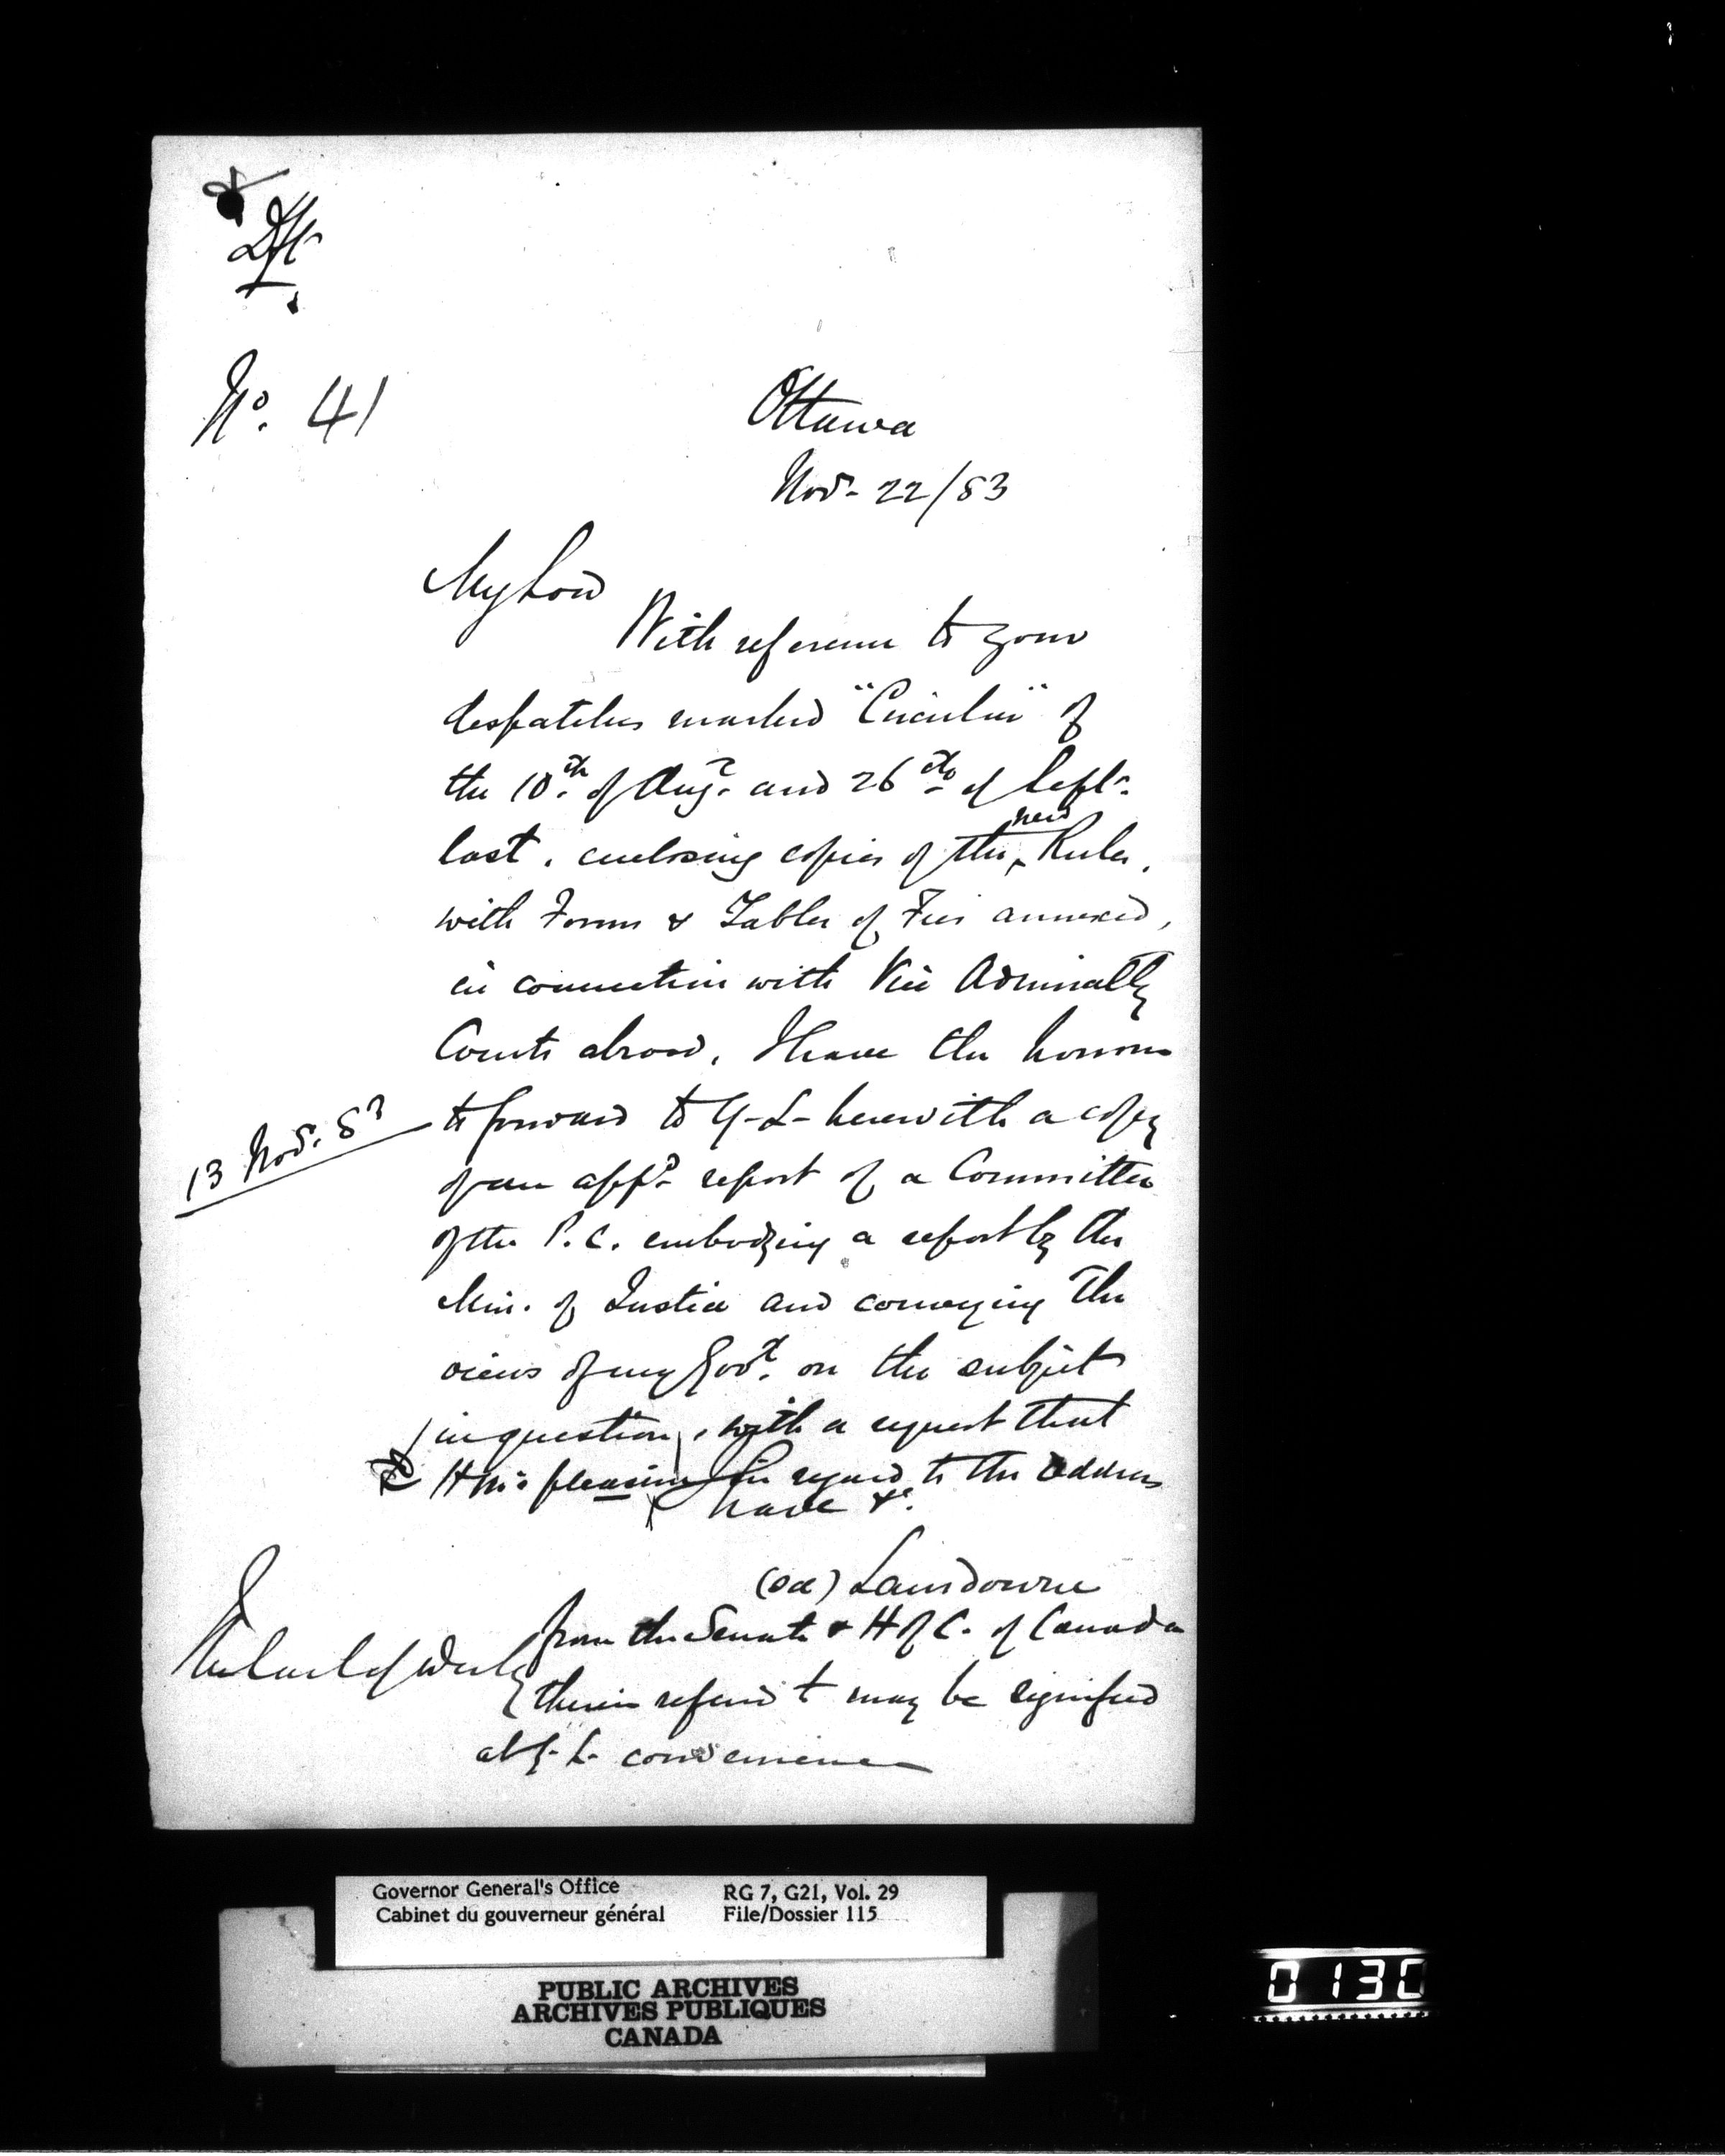 Dft.
No. 41
Ottawa
Nov. 22/83
My Lord
With reference to your
despatches marked "Circular" of
the 10th. of Augt. and 26th of Septr.
last, enclosing copies of the new Rules,
with Forms & Tables of Fees annexed,
in connection with Vice Admiralty
Courts abroad, I have the honour
13 Nov. 83
to forward to Y-L- herewith a copy
of an appd. report of a Committee
of the P.C. embodying a report by the
Min. of Justice and conveying the
views of my Govt. on the subject
in question, with a request that
H M's pleasure in regard to the Address
have &c.
(sd) Lansdowne
from the Senate & H of C. of Canada
The Earl of Derby
therein referred to may be signified
at Y- L- convenience
Governor General's Office
Cabinet du gouverneur général
RG 7, G21, Vol. 29
File/Dossier 115
PUBLIC ARCHIVES
ARCHIVES PUBLIQUES
CANADA
0130